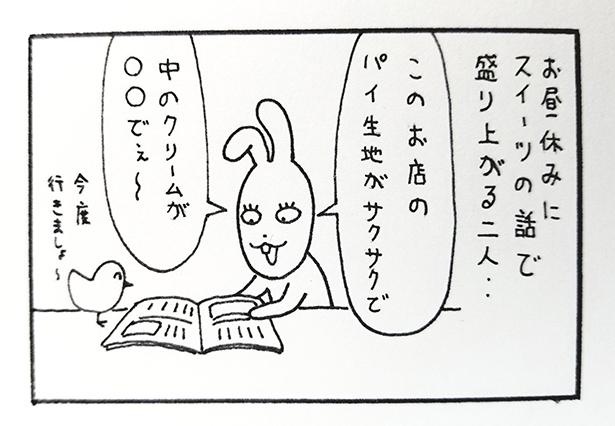 お昼休みに
スイーツの話で
盛り上がる二人‥
このお店の
パイ生地がサクサクで
中のクリームが
〇〇でぇ〜
今度
行きましょ〜